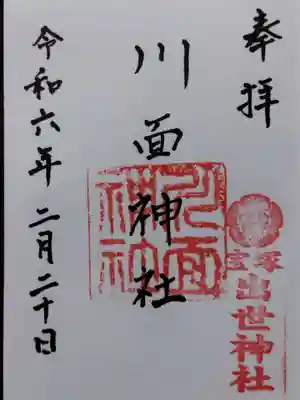 奉拝
宝塚
出世神社
川面神社
川面神社
令和六年二月二十日